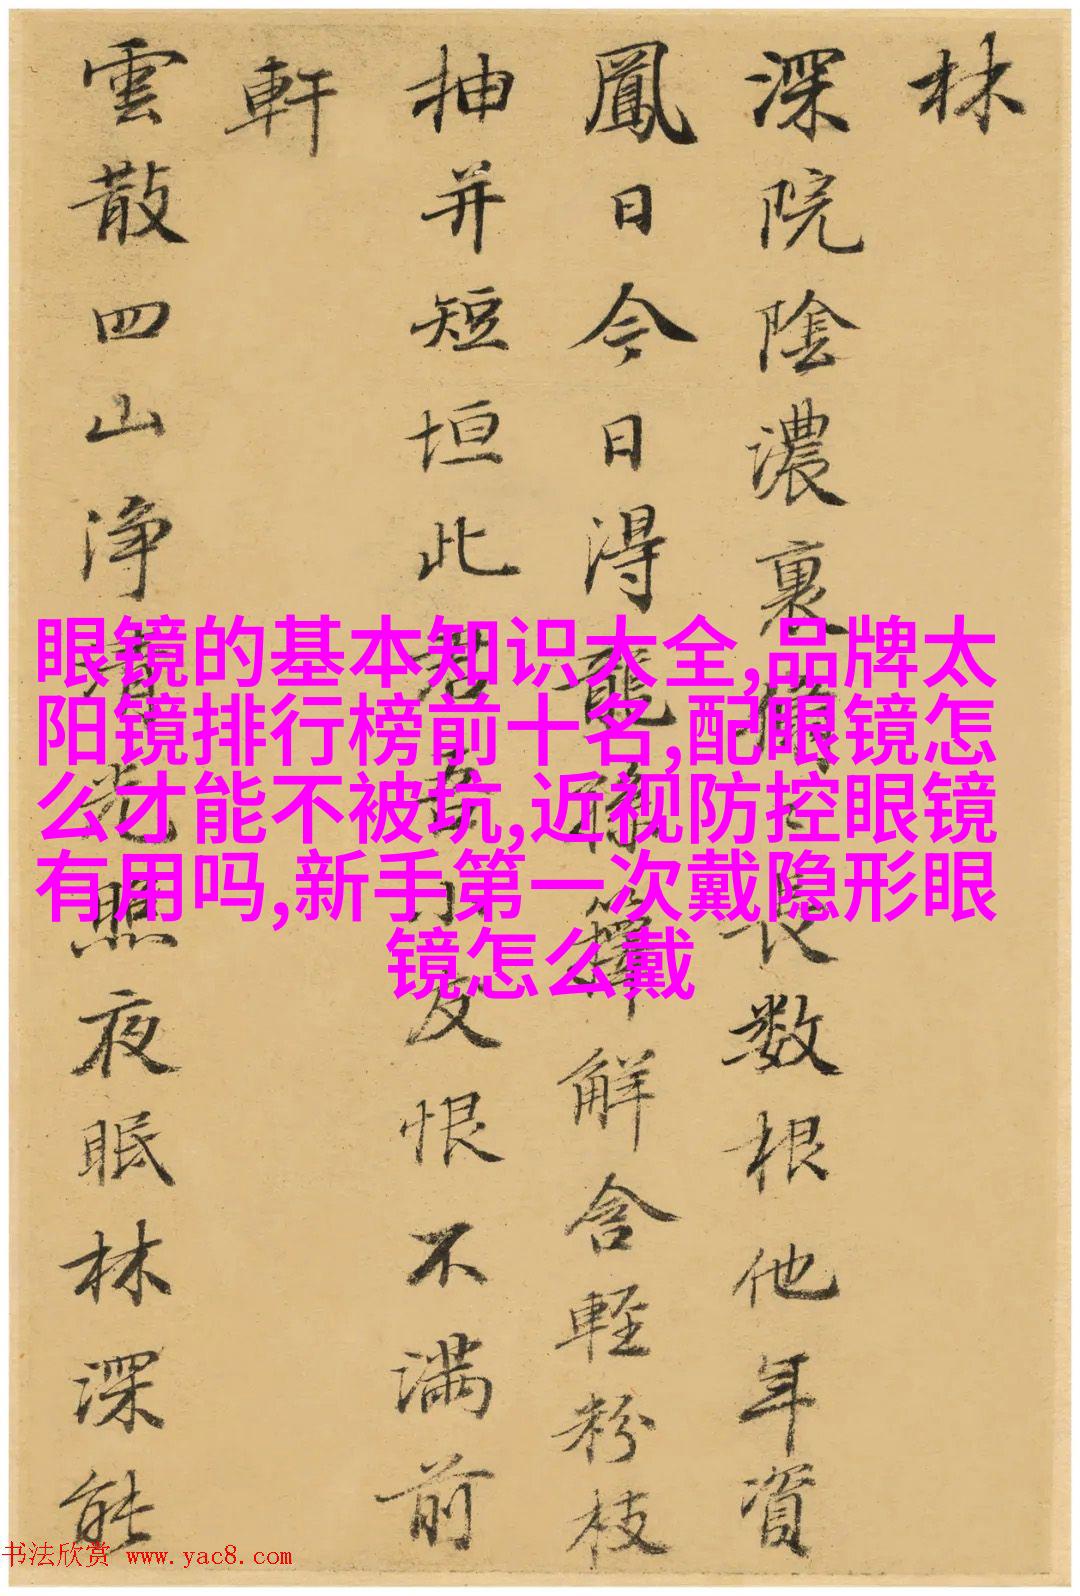 林
深院陰濃裹長数根他年資
鳳日今日得龍孫籜解含輕粉枝
抽并短垣此君吾小友恨不满前
軒
雲散四山净清光照夜眠林深能
眼镜的基本知识大全,品牌太
阳镜排行榜前十名,配眼镜怎
么才能不被坑,近视防控眼镜
有用吗,新手第一次戴隐形眼
镜怎么戴
书法欣赏 www.yac8.com